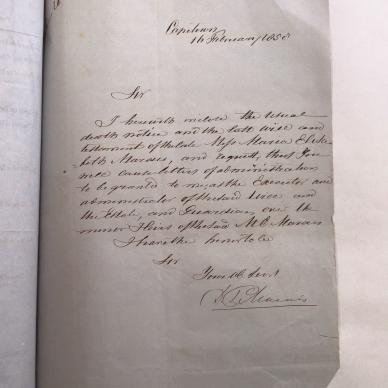 Capetown
16 February 1858
Sir
I herewith inclose the usual
death notice and the last will and
testament of the late Miss Maria Eliza
beth Marais, and request, that you
will cause letters of administration
to be granted to me, as the Executor and
administrator of the said Will and
the Estate, and Guardian, over the
minor Heirs of the said M E Marais
I have the honor to be
Sir
Your Ob Servt
Marais